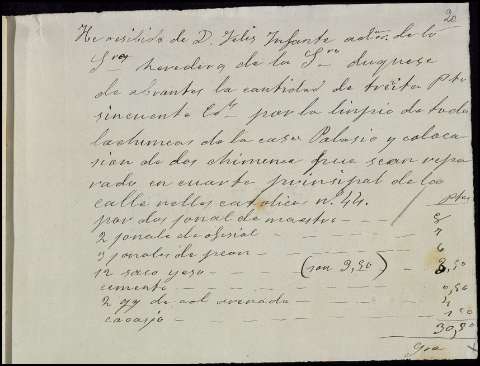 20
He resibido de D. Felis Infante adm.or de lo
S.res heredero de la S.ra duquese
de abrantes la cantidad de treita Pts
sincuenta Cts por la limpia de toda
laschimeas de la casa Palasio y coloca
sion de dos chimenea que sean repa
rado en cuarto prinsipal de la
calle relles catolicos n. 44.
Ptas
por dos jonal de maestro — 8
2 jonales de ofisial — 7
3 jonales de peon — 6
12 saco yeso — (son 3,50) — 3,50
cemento — 0,50
2 qq de cal — 
cacasjo — 1 50
30,50